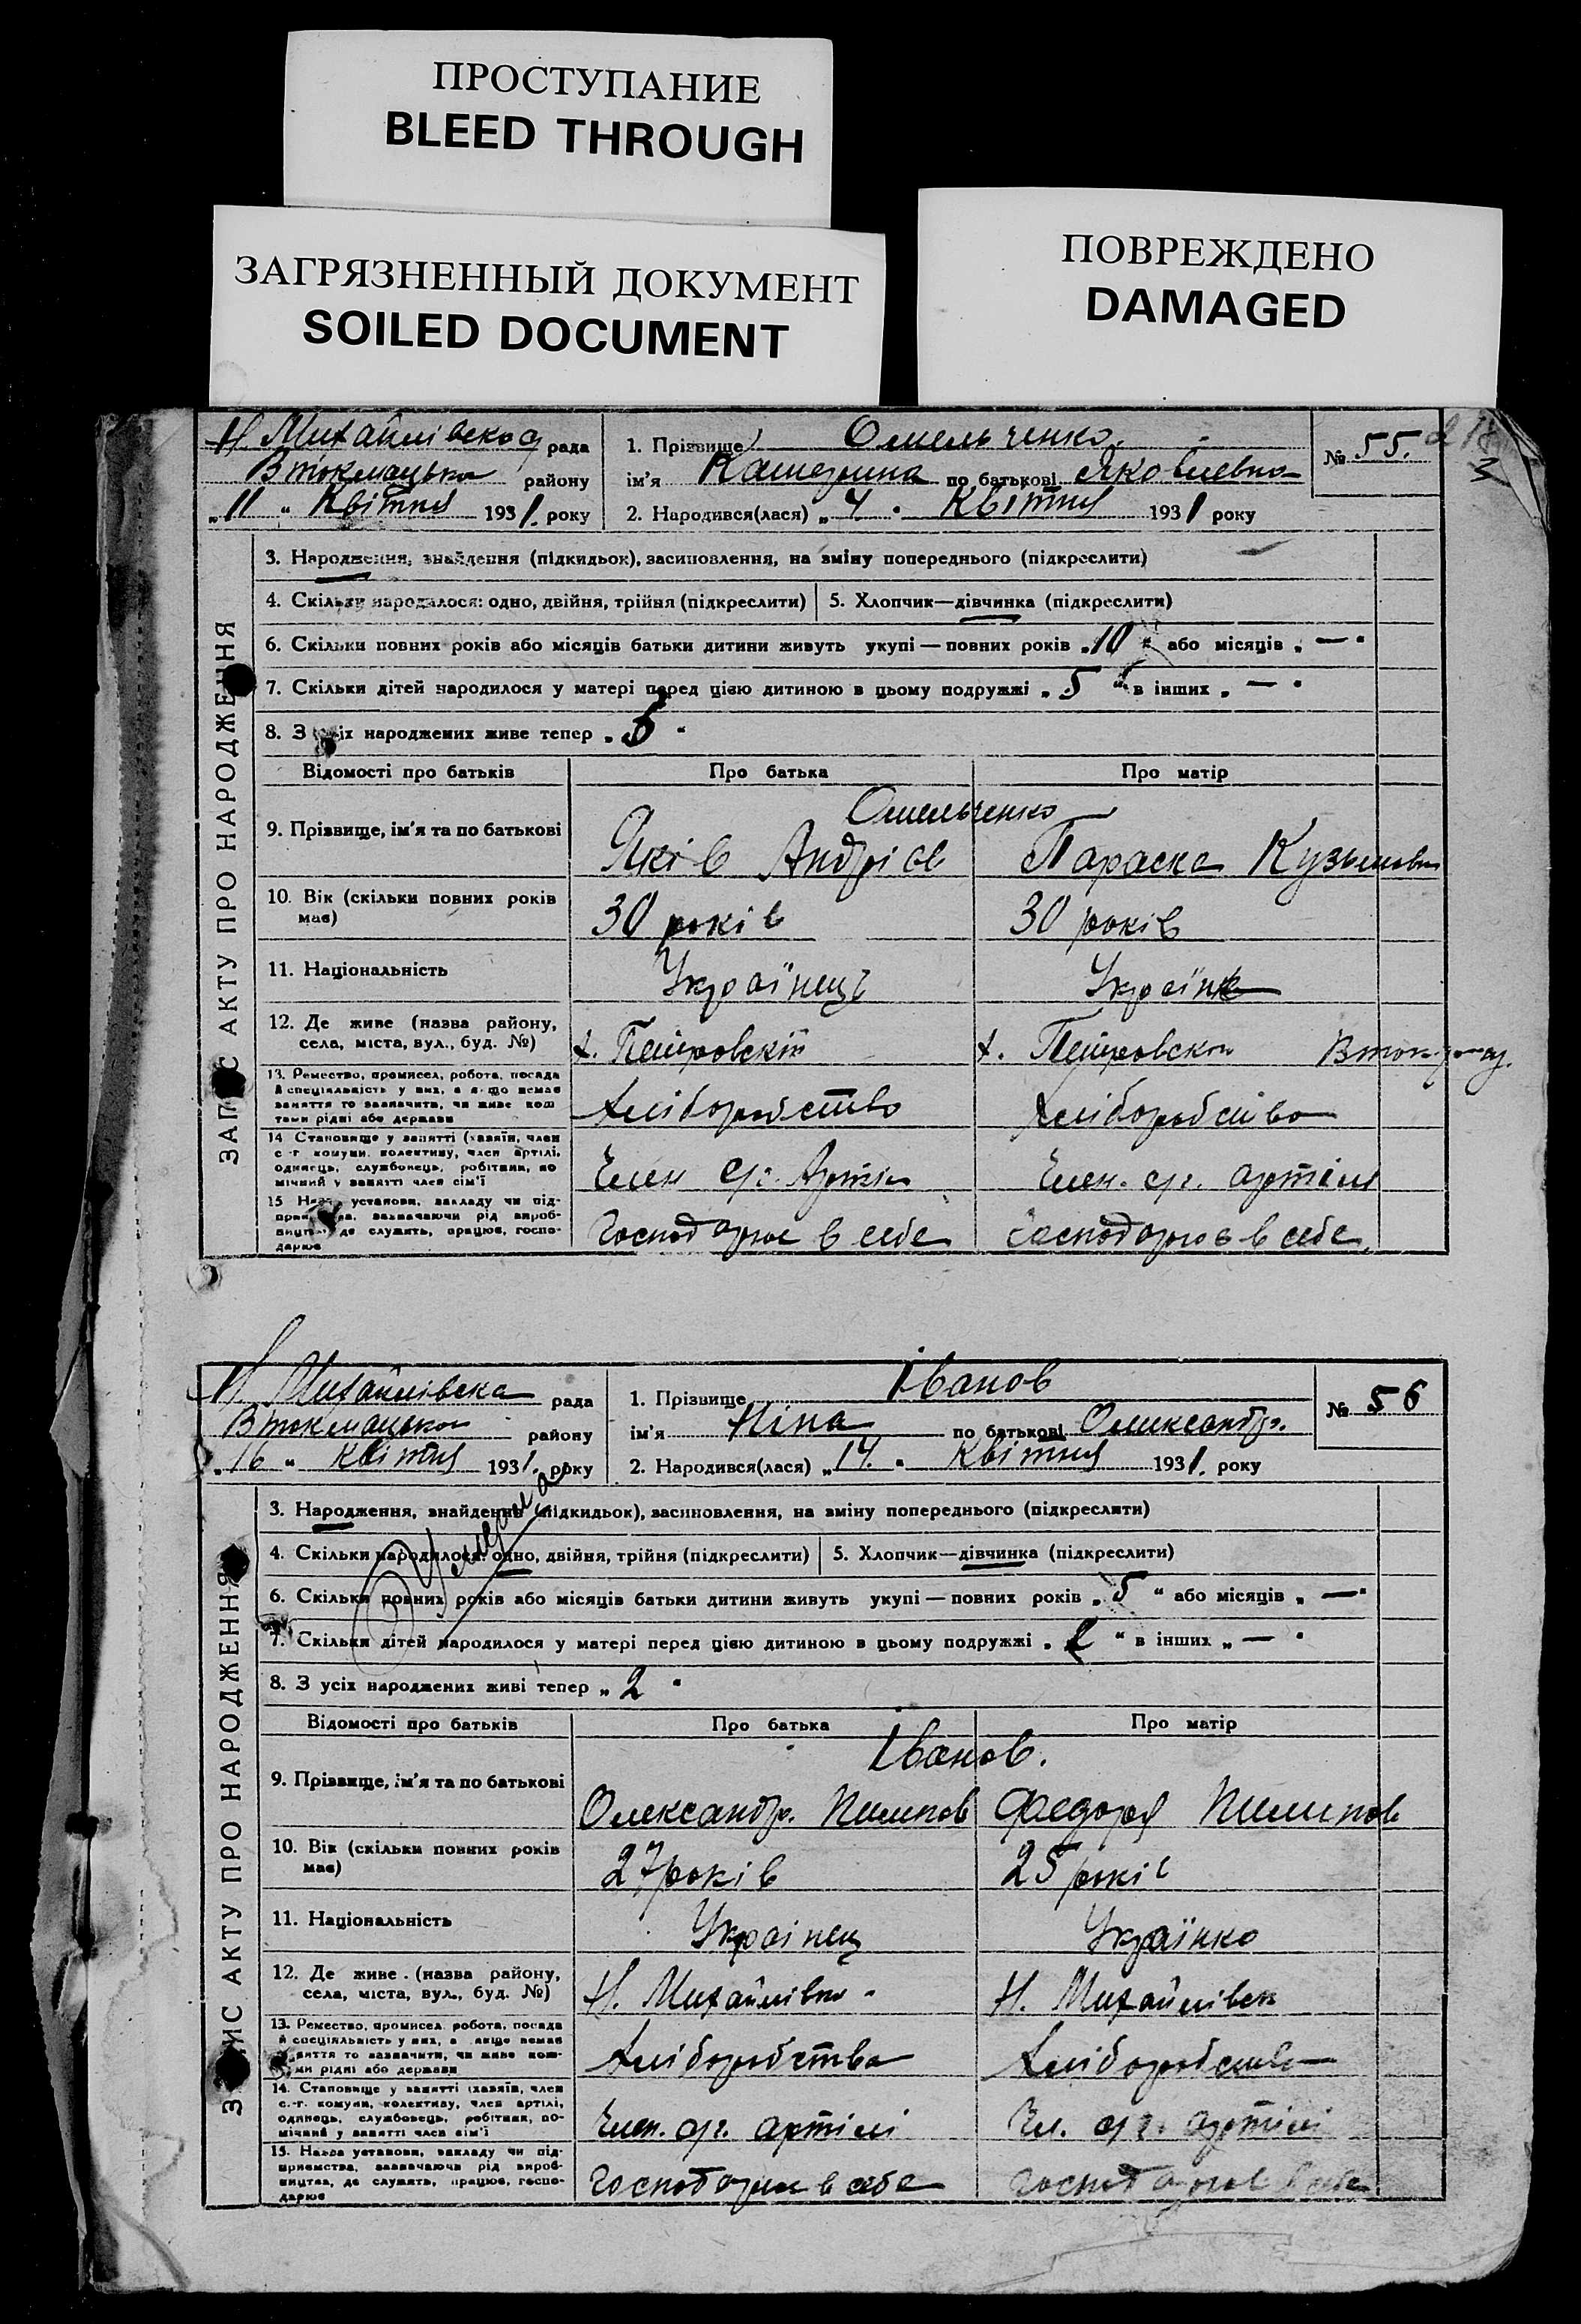 ПРОСТУПАНИЕ
BLEED THROUGH
ЗАГРЯЗНЕННЫЙ ДОКУМЕНТ
SOILED DOCUMENT
ПОВРЕЖДЕНО
DAMAGED
Н. Михайлівська рада
Втокмацько району
„11 " Квітня 1931. року
1. Прізвище Омельченко.
ім'я Катерина по батькові Яковлевна
2. Народився(лася) „4 " Квітня 1931 року
№ 55.
ЗАПИС АКТУ ПРО НАРОДЖЕННЯ
3. Народження, знайдення (підкидьок), засиновлення, на зміну попереднього (підкреслити)
4. Скільки народилося: одно, двійня, трійня (підкреслити) 5. Хлопчик—дівчинка (підкреслити)
6. Скільки повних років або місяців батьки дитини живуть укупі — повних років „10 " або місяців „ — "
7. Скільки дітей народилося у матері перед цією дитиною в цьому подружжі „ 5 " в інших „ — "
8. З усіх народжених живе тепер „ 5 "
Відомості про батьків Про батька Про матір
Омельченко
9. Прізвище, ім'я та по батькові Яків Андріев Параска Кузьмовн
10. Вік (скільки повних років має) 30 років 30 років
11. Національність Українець Українк
12. Де живе (назва району, села, міста, вул., буд. №) х. Петровскій х. Петровском
13. Ремество, промисел, робота, посада й спеціяльність у них, а якщо немає заняття то зазначити, чи живе коштами рідні або держави Хліборобство Хліборобство
14. Становище у занятті (хазяїн, член с.-г. комуни, колективу, член артілі, одинець, службовець, робітник, помічний у занятті член сім'ї Член с/г. Артіл Член. с/г. артілі
15. Назва установи, закладу чи підприємства, зазначаючи рід виробництва, де служить, працює, господарює Господарює в себе господарює в себе
Н. Михайлівська рада
Втокмацько району
„16 " квітня 1931. року
1. Прізвище Іванов
ім'я Ніна по батькові Олександр.
2. Народився(лася) „14. " Квітня 1931. року
№ 56
Умерла
ЗАПИС АКТУ ПРО НАРОДЖЕННЯ
3. Народження, знайдення (підкидьок), засиновлення, на зміну попереднього (підкреслити)
4. Скільки народилося: одно, двійня, трійня (підкреслити) 5. Хлопчик—дівчинка (підкреслити)
6. Скільки повних років або місяців батьки дитини живуть укупі — повних років „ 5 " або місяців „ — "
7. Скільки дітей народилося у матері перед цією дитиною в цьому подружжі „ 2 " в інших „ — "
8. З усіх народжених живі тепер „ 2 "
Відомості про батьків Про батька Про матір
Іванов.
9. Прізвище, ім'я та по батькові Олександр. Пилипов Федора Пилипов
10. Вік (скільки повних років має) 27 років 25 років
11. Національність Українец Українка
12. Де живе (назва району, села, міста, вул., буд. №) Н. Михайлівка Н. Михайлівка
13. Ремество, промисел, робота, посада й спеціяльність у них, а якщо немає заняття то зазначити, чи живе коштами рідні або держави Хліборобство Хліборобство
14. Становище у занятті (хазяїн, член с.-г. комуни, колективу, член артілі, одинець, службовець, робітник, помічний у занятті член сім'ї Член. с/г. артілі Чл. с/г. артілі
15. Назва установи, закладу чи підприємства, зазначаючи рід виробництва, де служить, працює, господарює Господарює в себе Господарює в себе